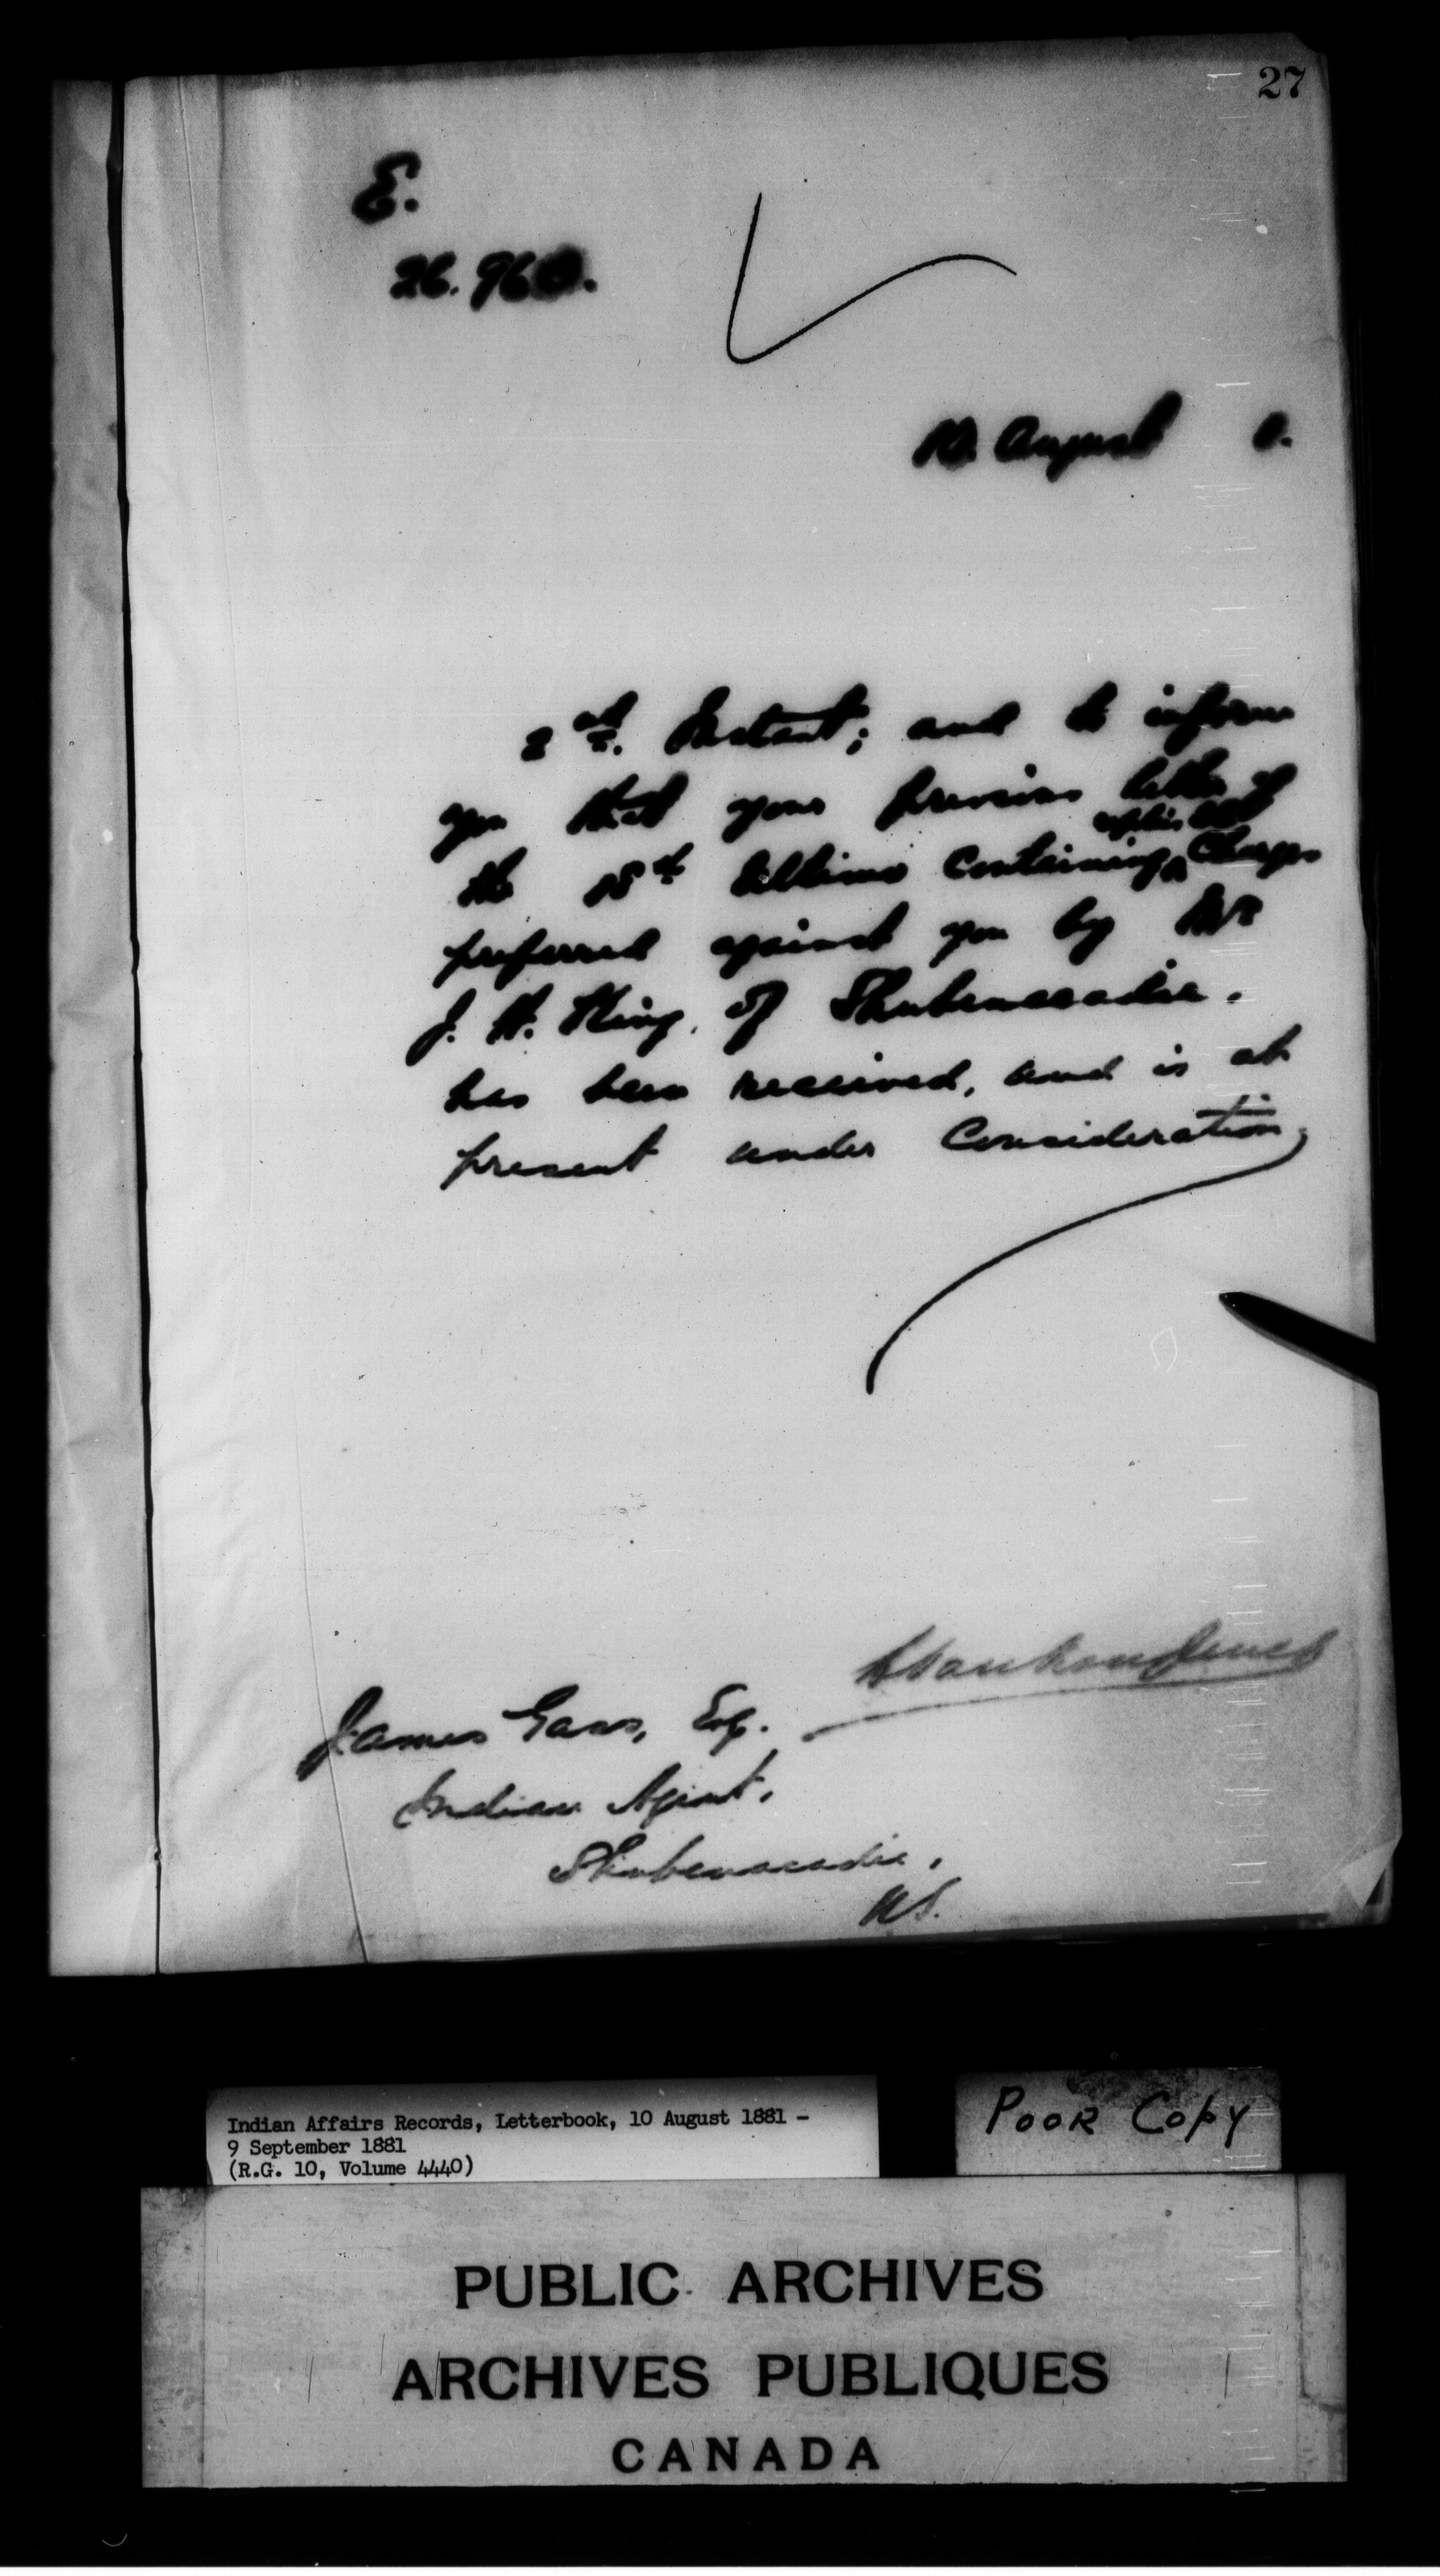 27
E.
26.960.
10. August
2nd. Instant; and to inform
you that your previous letter of
the 18th Ultimo containing Charges
preferred against you by Mr
J. H. King, of Shubenacadie.
has been received, and is at
present under Consideration,
James Gass, Esq.
Indian Agent,
Shubenacadie,
N.S.
Indian Affairs Records, Letterbook, 10 August 1881 -
9 September 1881
(R.G. 10, Volume 4440)
POOR COPY
PUBLIC ARCHIVES
ARCHIVES PUBLIQUES
CANADA